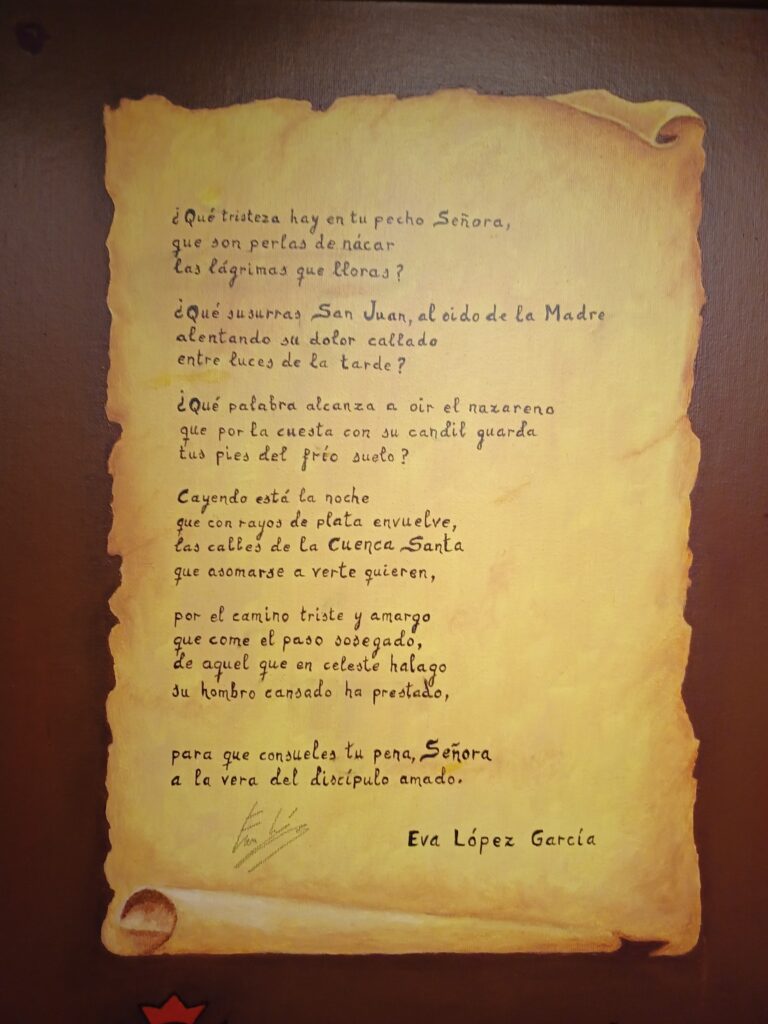 ¿Qué tristeza hay en tu pecho Señora,
que son perlas de nácar
las lágrimas que lloras?
¿Qué susurras San Juan, al oido de la Madre
alentando su dolor callado
entre luces de la tarde?
¿Qué palabra alcanza a oir el nazareno
que por la cuesta con su candil guarda
tus pies del frío suelo?
Cayendo está la noche
que con rayos de plata envuelve,
las calles de la Cuenca Santa
que asomarse a verte quieren,
por el camino triste y amargo
que come el paso sosegado,
de aquel que en celeste halago
su hombro cansado ha prestado,
para que consueles tu pena, Señora
a la vera del discípulo amado.
Eva López García